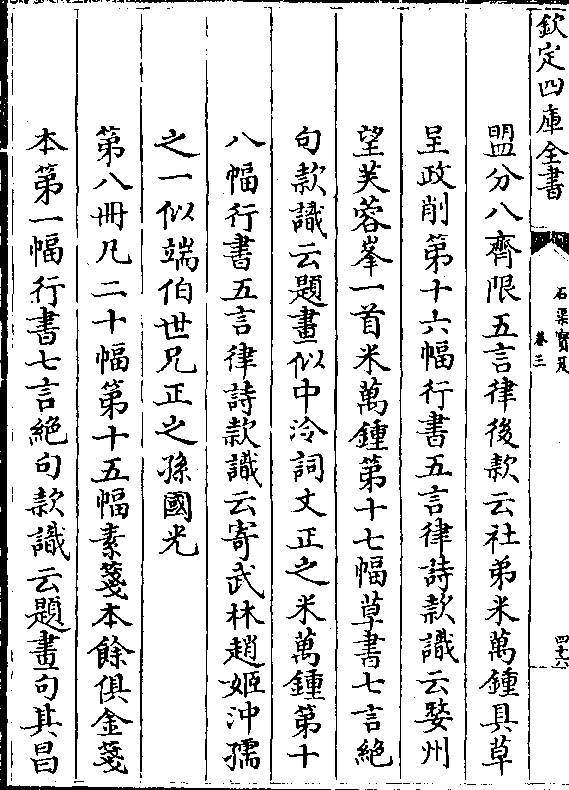 欽定四庫全書
石渠寶笈
卷三
四十六
盟分八齊限五言律後款云社弟米萬鍾具草
呈政削第十六幅行書五言律詩款識云婺州
望芙蓉峯一首米萬鍾第十七幅草書七言絶
句款識云題畫似中泠詞丈正之米萬鍾第十
八幅行書五言律詩款識云寄武林趙姬沖孺
之一似端伯世兄正之孫國光
第八冊凡二十幅第十五幅素箋本餘俱金箋
本第一幅行書七言絶句款識云題畫句其昌